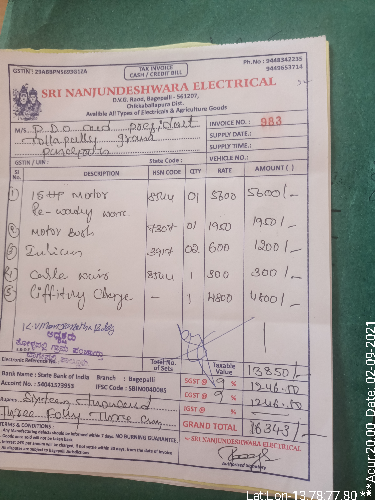 GSTIN : 29ABBPN5693B1ZA
TAX INVOICE
CASH / CREDIT BILL
Ph.No : 9448342235
9449653714
SRI NANJUNDESHWARA ELECTRICAL
D.V.G. Road, Bagepalli - 561207,
Chikkaballapura Dist.
Avalible All Types of Electricals & Agriculture Goods
M/S. P.D.O and president
grama
INVOICE NO.: 983
SUPPLY DATE.:
SUPPLY TIME.:
GSTIN / UIN :
State Code :
VEHICLE NO.:
Sl No DESCRIPTION HSN CODE QTY RATE AMOUNT ( )
1 15 HP Motor 8544 01 5600 5600/-
Re-winding
2 Motor Bush 01 1950 1950/-
3 3917 02 600 1200/-
4 Cable 8544 1 300 300/-
5 Charge - 1 4800 4800/-
ಅಧ್ಯಕ್ಷರು
Electronic Reference No.
Total No. of Sets
Taxable Value 13850/-
Bank Name : State Bank of India Branch : Bagepalli
Account No. : 54041573953 IFSC Code : SBIN0040085
SGST @ 9 % 1246.50
CGST @ 9 % 1246.50
Rupees Sixteen Thousand
Three Forty Three Only
GRAND TOTAL 16343/-
TERMS & CONDITIONS :
For SRI NANJUNDESHWARA ELECTRICAL
Authorised Signatory
Lat,Lon-13.78:77.80 Acur:20.00, Date:02-09-2021